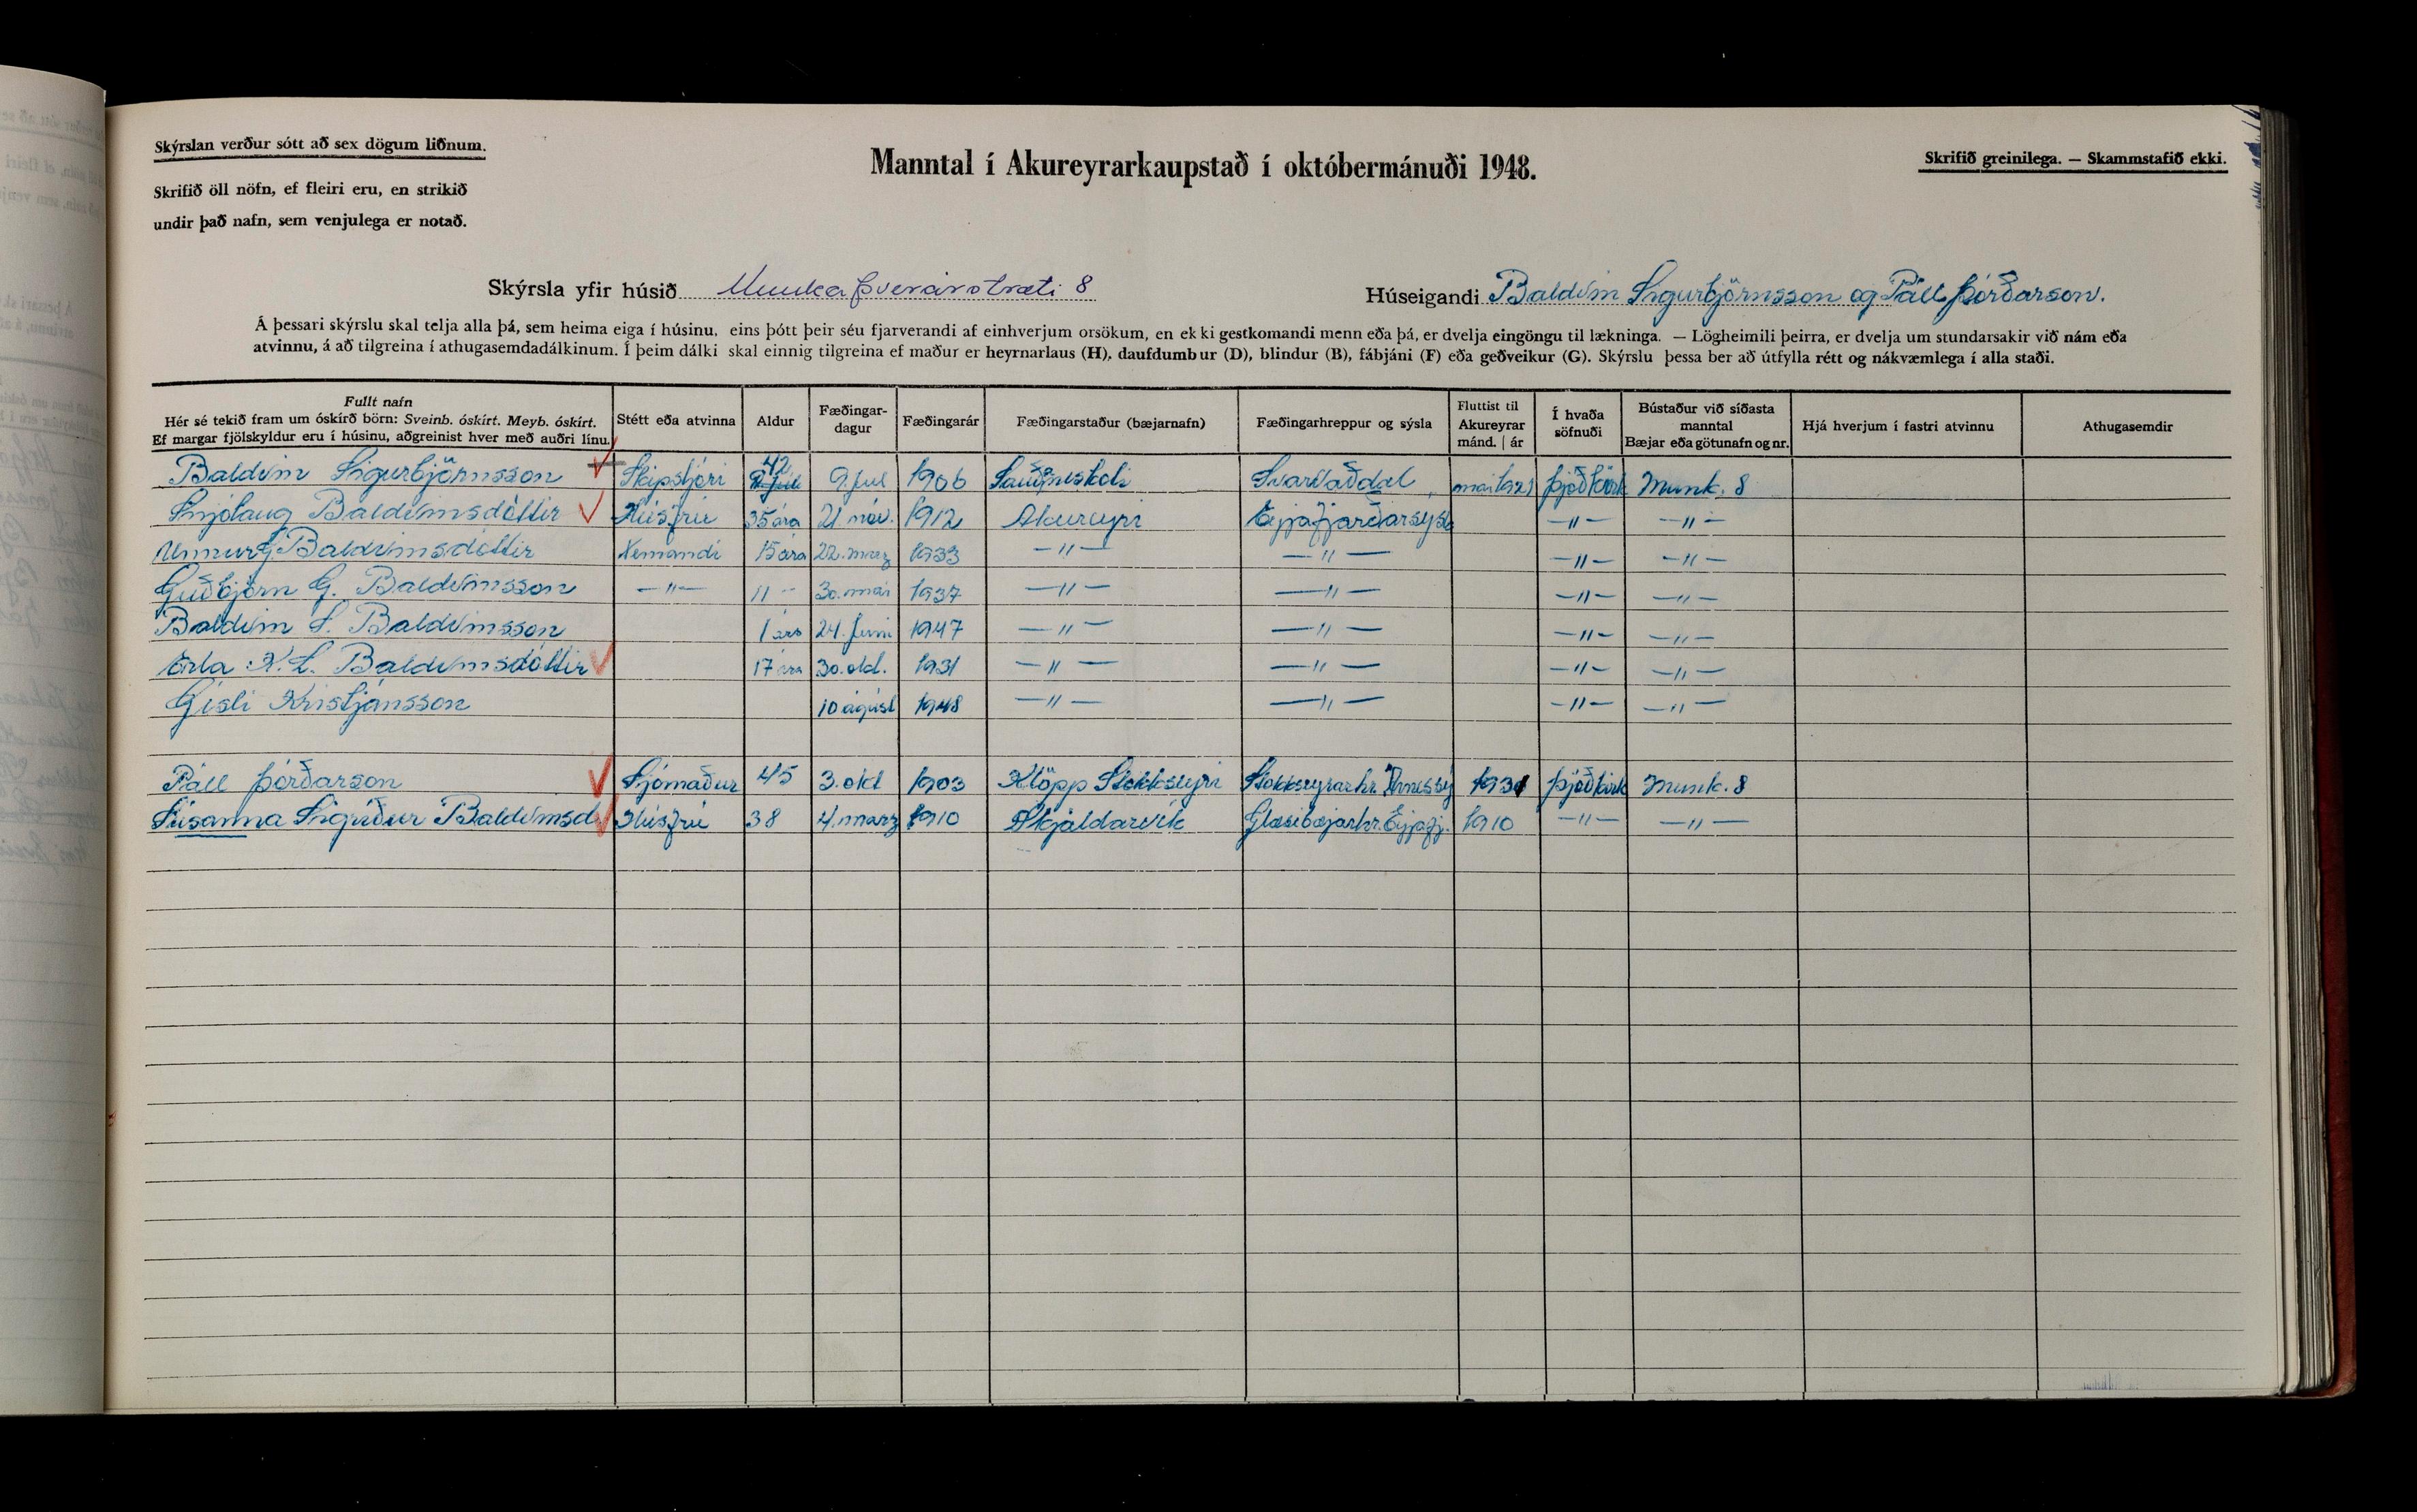 Skýrslan verður sótt að sex dögum liðnum.
Skrifið öll nöfn, ef fleiri eru, en strikið
undir það nafn, sem venjulega er notað.
Manntal í Akureyrarkaupstað í októbermánuði 1948.
Skrifið greinilega. — Skammstafið ekki.
Skýrsla yfir húsið Munkaþverárstræti 8
Húseigandi Baldvin Sigurbjörnsson og Páll Þórðarson.
Á þessari skýrslu skal telja alla þá, sem heima eiga í húsinu, eins þótt þeir séu fjarverandi af einhverjum orsökum, en ekki gestkomandi menn eða þá, er dvelja eingöngu til lækninga. — Lögheimili þeirra, er dvelja um stundarsakir við nám eða
atvinnu, á að tilgreina í athugasemdadálkinum. Í þeim dálki skal einnig tilgreina ef maður er heyrnarlaus (H), daufdumbur (D), blindur (B), fábjáni (F) eða geðveikur (G). Skýrslu þessa ber að útfylla rétt og nákvæmlega í alla staði.
Fullt nafn
Hér sé tekið fram um óskírð börn: Sveinb. óskírt. Meyb. óskírt.
Ef margar fjölskyldur eru í húsinu, aðgreinist hver með auðri línu.
Stétt eða atvinna
Aldur
Fæðingar-
dagur
Fæðingarár
Fæðingarstaður (bæjarnafn)
Fæðingarhreppur og sýsla
Fluttist til
Akureyrar
mánd. | ár
Í hvaða
söfnuði
Bústaður við síðasta
manntal
Bæjar eða götunafn og nr.
Hjá hverjum í fastri atvinnu
Athugasemdir
Baldvin Sigurbjörnsson Skipstjóri 42 9. júl 1906 Sauðaneskoti Svarfaðdal maí 1921 Þjóðkirk Munk. 8
Snjólaug Baldvinsdóttir Húsfrú 35 ára 21. nóv. 1912 Akureyri Eyjafjarðarsýsl —"— —"—
Unnur G Baldvinsdóttir Nemandi 15 ára 22. marz 1933 —"— —"— —"— —"—
Guðbjörn G. Baldvinsson —"— 11 - 30. maí 1937 —"— —"— —"— —"—
Baldvin S. Baldvinsson 1 árs 24. Júní 1947 —"— —"— —"— —"—
Erla K. L. Baldvinsdóttir 17 ára 30. okt. 1931 —"— —"— —"— —"—
Gísli Kristjánsson 10 ágúst 1948 —"— —"— —"— —"—
Páll Þórðarson Sjómaður 45 3. okt 1903 Klöpp Stokkseyri Stokkseyrarhr. Árnessý 1931 Þjóðkirk Munk. 8
Súsanna Sigríður Baldvinsd Húsfrú 38 4. marz 1910 Skjaldarvík Glæsibæjarhr. Eyjafj. 1910 —"— —"—